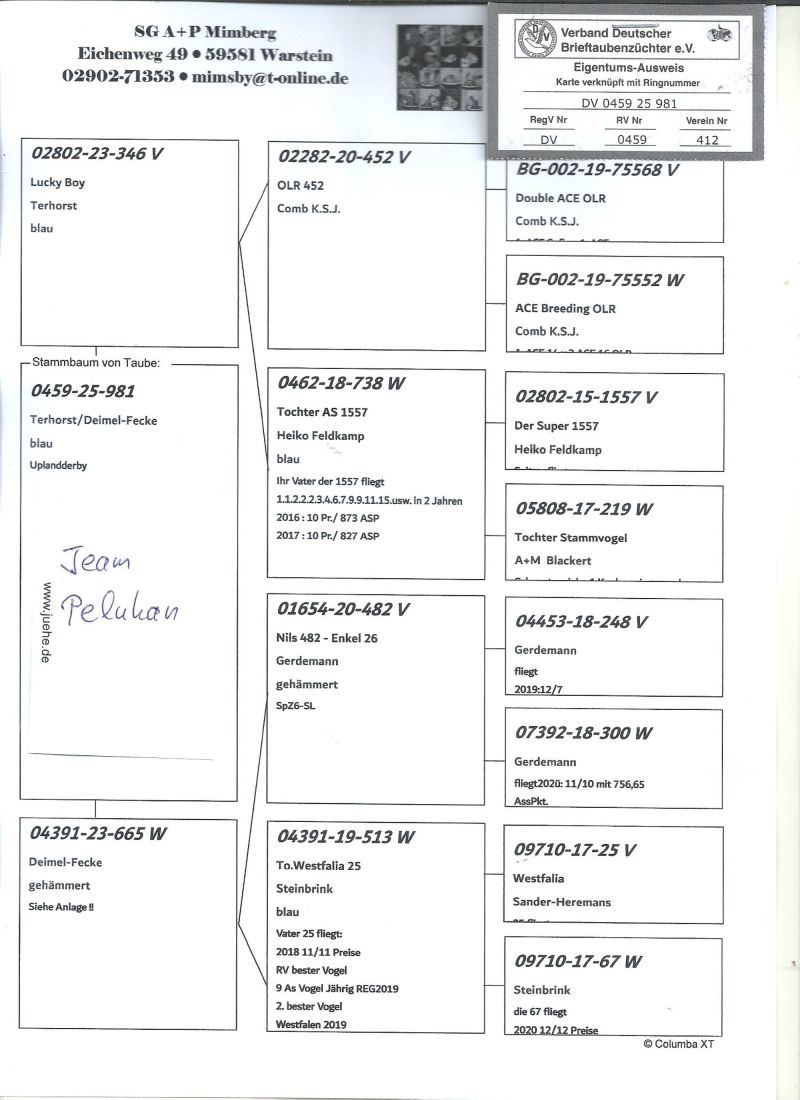 SG A+P Mimberg
Eichenweg 49 ● 59581 Warstein
02902-71353 ● mimsby@t-online.de
Verband Deutscher
Brieftaubenzüchter e.V.
Eigentums-Ausweis
Karte verknüpft mit Ringnummer
DV 0459 25 981
RegV Nr RV Nr Verein Nr
DV 0459 412
02802-23-346 V
Lucky Boy
Terhorst
blau
Stammbaum von Taube:
0459-25-981
Terhorst/Deimel-Fecke
blau
Uplandderby
Team
Peluhan
www.juehe.de
04391-23-665 W
Deimel-Fecke
gehämmert
Siehe Anlage !!
02282-20-452 V
OLR 452
Comb K.S.J.
0462-18-738 W
Tochter AS 1557
Heiko Feldkamp
blau
Ihr Vater der 1557 fliegt
1.1.2.2.2.3.4.6.7.9.9.11.15.usw. in 2 Jahren
2016 : 10 Pr./ 873 ASP
2017 : 10 Pr./ 827 ASP
01654-20-482 V
Nils 482 - Enkel 26
Gerdemann
gehämmert
SpZ6-SL
04391-19-513 W
To.Westfalia 25
Steinbrink
blau
Vater 25 fliegt:
2018 11/11 Preise
RV bester Vogel
9 As Vogel Jährig REG2019
2. bester Vogel
Westfalen 2019
BG-002-19-75568 V
Double ACE OLR
Comb K.S.J.
BG-002-19-75552 W
ACE Breeding OLR
Comb K.S.J.
02802-15-1557 V
Der Super 1557
Heiko Feldkamp
05808-17-219 W
Tochter Stammvogel
A+M Blackert
04453-18-248 V
Gerdemann
fliegt
2019:12/7
07392-18-300 W
Gerdemann
fliegt202ü: 11/10 mit 756,65
AssPkt.
09710-17-25 V
Westfalia
Sander-Heremans
09710-17-67 W
Steinbrink
die 67 fliegt
2020 12/12 Preise
© Columba XT